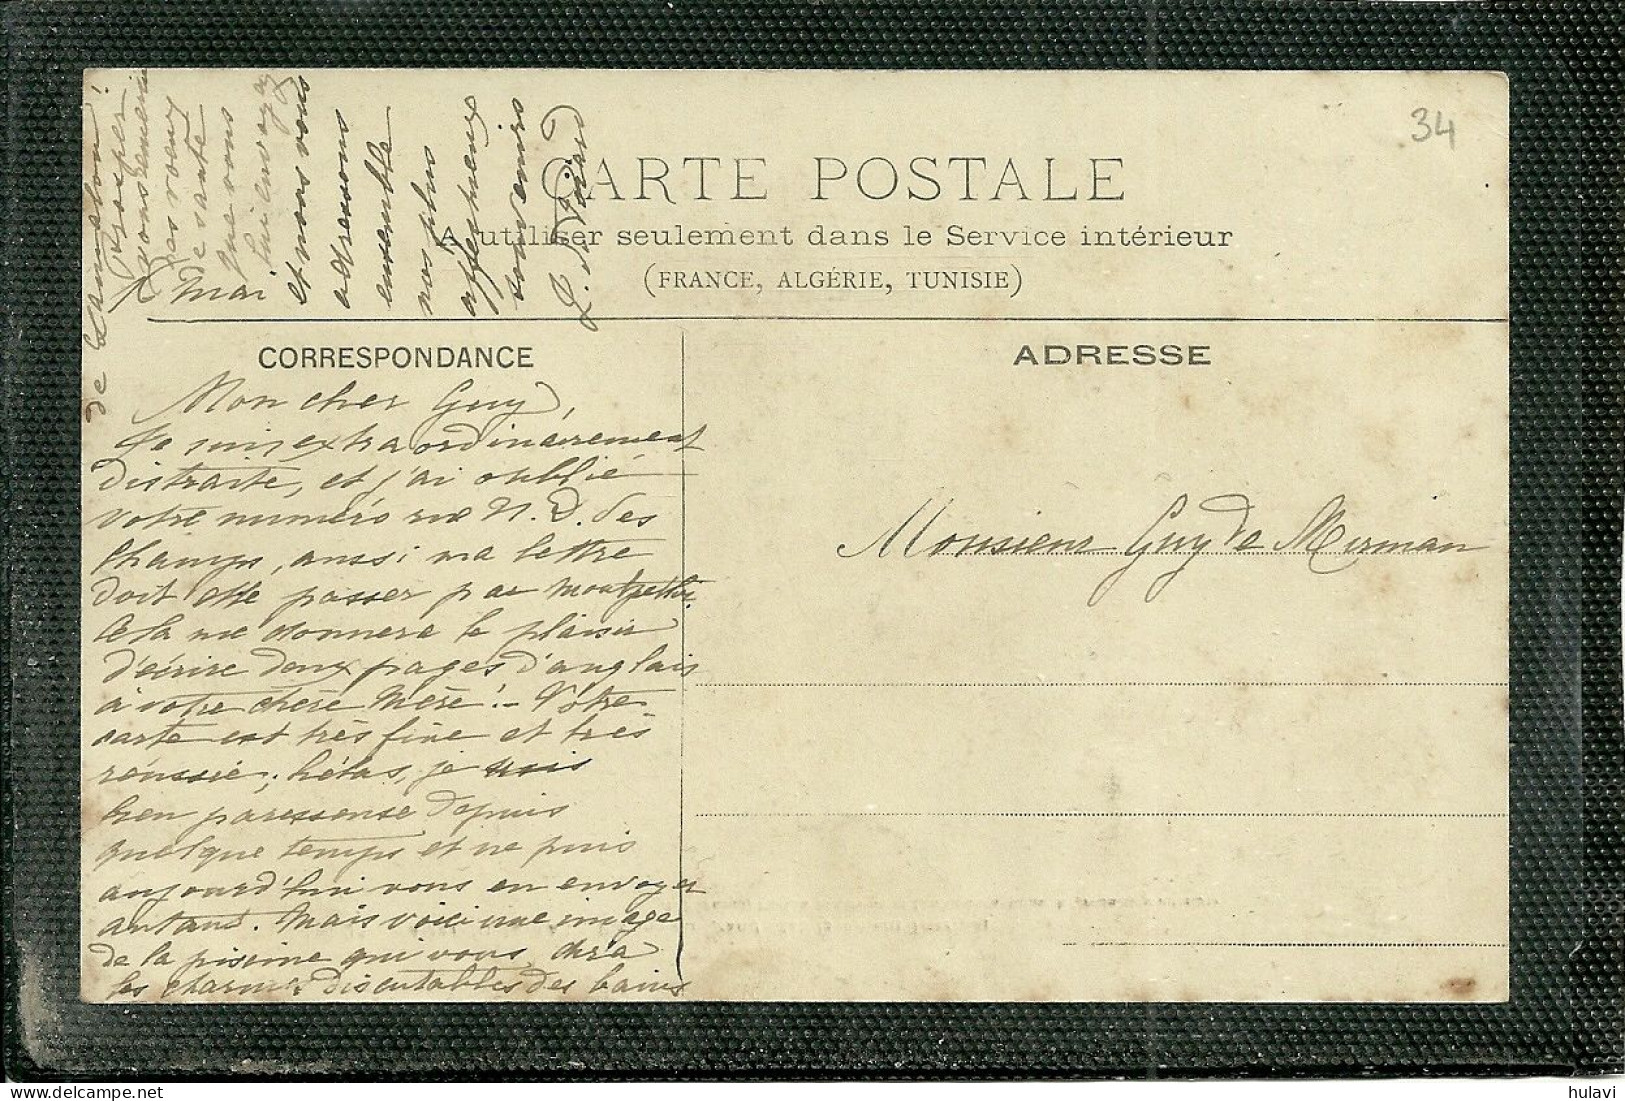 34
CARTE POSTALE
A utiliser seulement dans le Service intérieur
(FRANCE, ALGÉRIE, TUNISIE)
CORRESPONDANCE
ADRESSE
Mon cher Guy,
Je suis extraordinairement
distraite, et j'ai oublié
votre numéro rue N. D. des
Champs, aussi ma lettre
doit elle passer par Montpellier.
Cela me donnera le plaisir
d'écrire deux pages d'anglais
à votre chère Mère! - Votre
carte est très fine et très
réussie; hélas, je suis
bien paresseuse depuis
quelque temps et ne puis
aujourd'hui vous en envoyer
autant. Mais voici une image
de la piscine qui vous dira
les charmes discutables des bains
de Lamalou!
Prosper
vous remercie
des voeux
de santé
que vous
lui envoyez
et nous vous
adressons
ensemble
nos plus
affectueux
souvenirs
Mai
Monsieur Guy de Mirman
hulavi